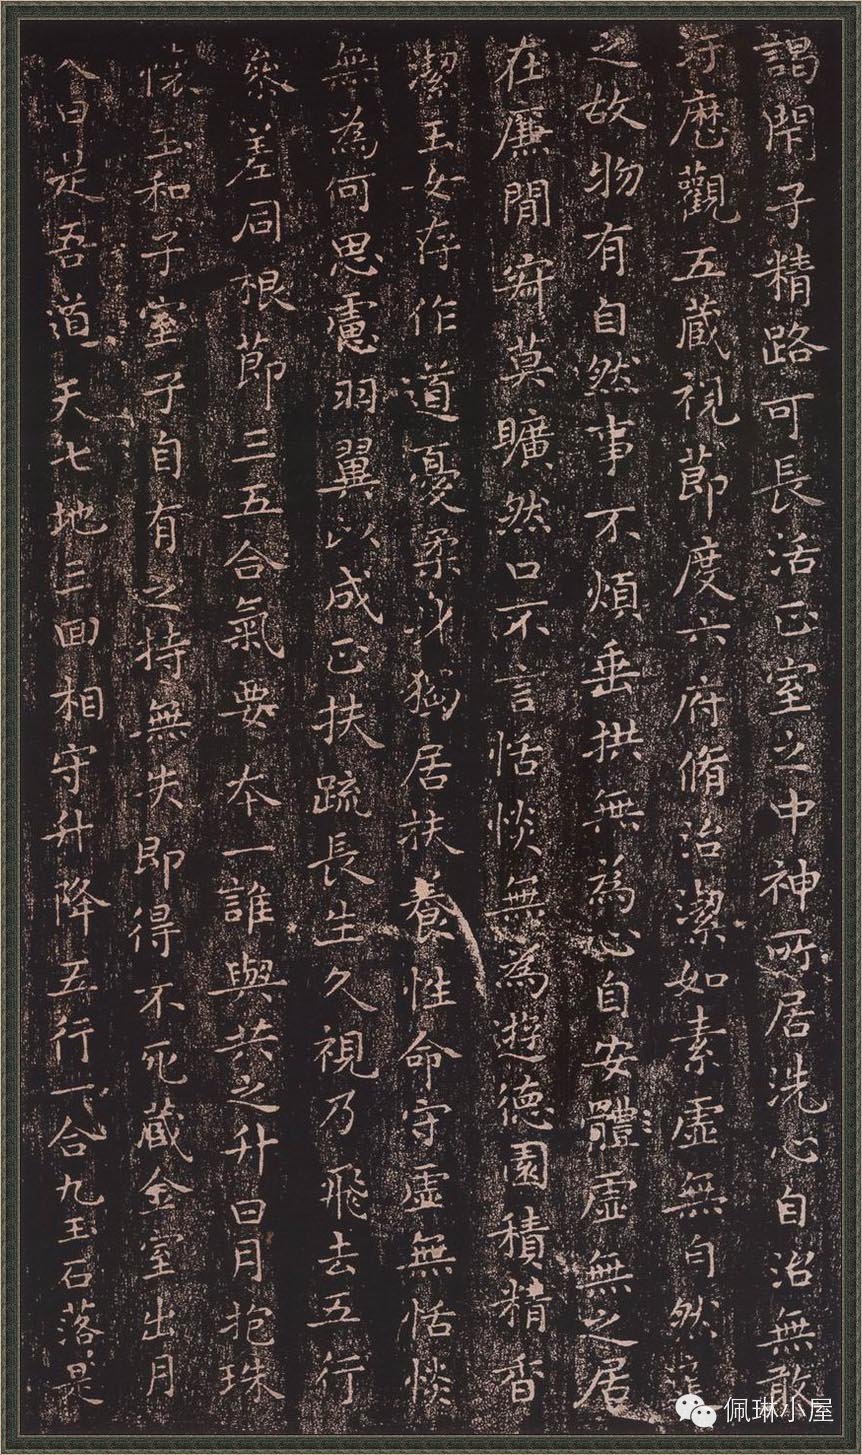 謁閇子精路可長活正室之中神所居洗心自治無敢
汙歷觀五藏視莭度六府脩治潔如素虛無自然道
之故物有自然事不煩垂拱無為心自安體虛無之居
在廉閒寂莫曠然口不言恬惔無為遊德園積精香
潔玉女存作道憂柔身獨居扶養性命守虛無恬惔
無為何思慮羽翼以成正扶疏長生久視乃飛去五行
參差同根莭三五合氣要本一誰與共之升日月抱珠
懷玉和子室子自有之持無失即得不死藏金室出月
入日是吾道天七地三回相守升降五行一合九玉石落是
佩琳小屋